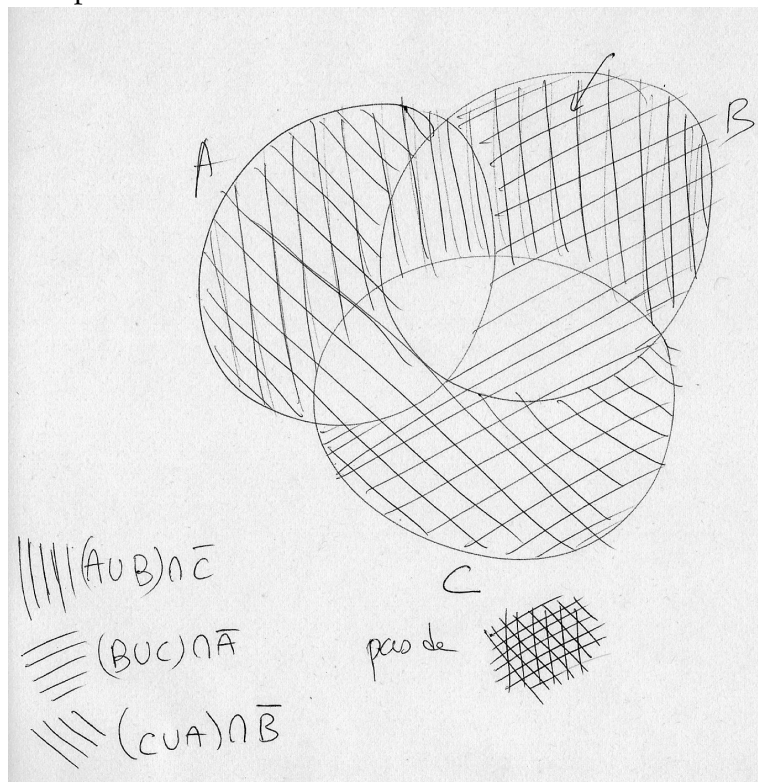 A
B
C
(A∪B)∩C̅
(B∪C)∩A̅
(C∪A)∩B̅
pas de